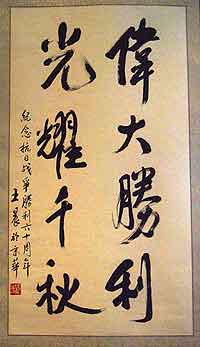 偉大勝利
光耀千秋
紀念抗日战爭勝利六十周年
王晨於京華